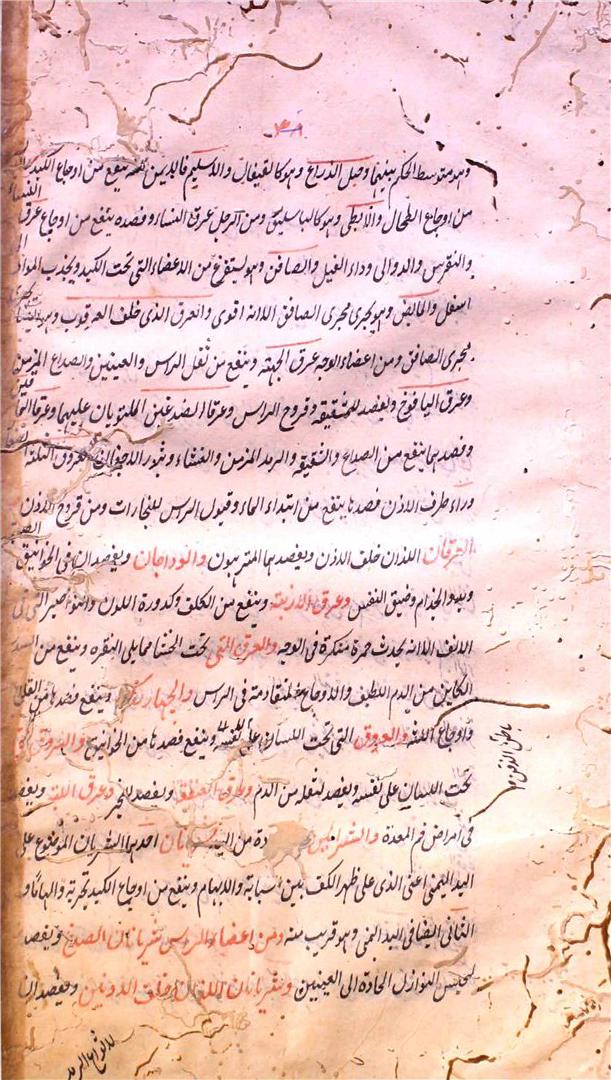 وهو متوسط الحكم بينهما وحبل الذراع وهو كالقيفال والاسيلم فالايمن منه ينفع من اوجاع الكبد
من اوجاع الطحال والابطى وهو كالباسليق ومن الرجل عرق النساء وفصده ينفع من اوجاع عرق النساء
والنقرس والدوالى وداء الفيل والصافن وهو ليستفرغ من الاعضاء التى تحت الكبد ويجذب المواد
اسفل والمابض وهو يجرى مجرى الصافن الا انه اقوى والعرق الذى خلف العرقوب
مجرى الصافن ومن اعضاء الوجه عرق الجبهة وينفع من ثقل الراس والعينين والصداع المزمن
وعرق اليافوخ ويفصد للشقيقة وقروح الراس وعرقا الصدغين الملتويان عليهما وعرقا
وفصدهما ينفع من الصداع والشقيقة والرمد المزمن والغشاء وبثور الاجفان
وراء طرف الاذن فصدها ينفع من ابتداء الماء وقبول الراس للبخارات ومن قروح الاذن
العرقان اللذان خلف الاذن ويفصدهما المتبرهون والوداجان ويفصدان فى الخوانيق
وبدو الجذام وضيق النفس وعرق الارنبة وينفع من الكلف وكدورة اللون والبواصير التى فى
الانف الا انه يحدث حمرة منكرة فى الوجه والعرق التى تحت الخششا مما يلى النقره وينفع من السدر
الكاين من الدم اللطيف والاوجاع المتقادمة فى الراس والجهار رك وينفع فصدها من القلاع
واوجاع اللثة والعروق التى تحت اللسان على نفسه وينفع فصدها من الخوانيق والعروق التى
باطن الذقن
تحت اللسان على نفسه ويفصد لثقله من الدم وعرق العنفقة ويفصد للبخر وعرق اللثة ويفصد
فى امراض فم المعدة والشرايين احدهما الشريان الموضوع على
اليد اليمنى اعنى الذى على ظهر الكف بين السبابة والابهام وينفع من اوجاع الكبد تجربة
الثانى ايضا فى اليد اليمنى وهو قريب منه ومن اعضاء الراس شريانان الصدغ ويفصد
لحبس النوازل الحادة الى العينين وشريانان اللذان خلف الاذنين ويفصد
لانواع الرمد